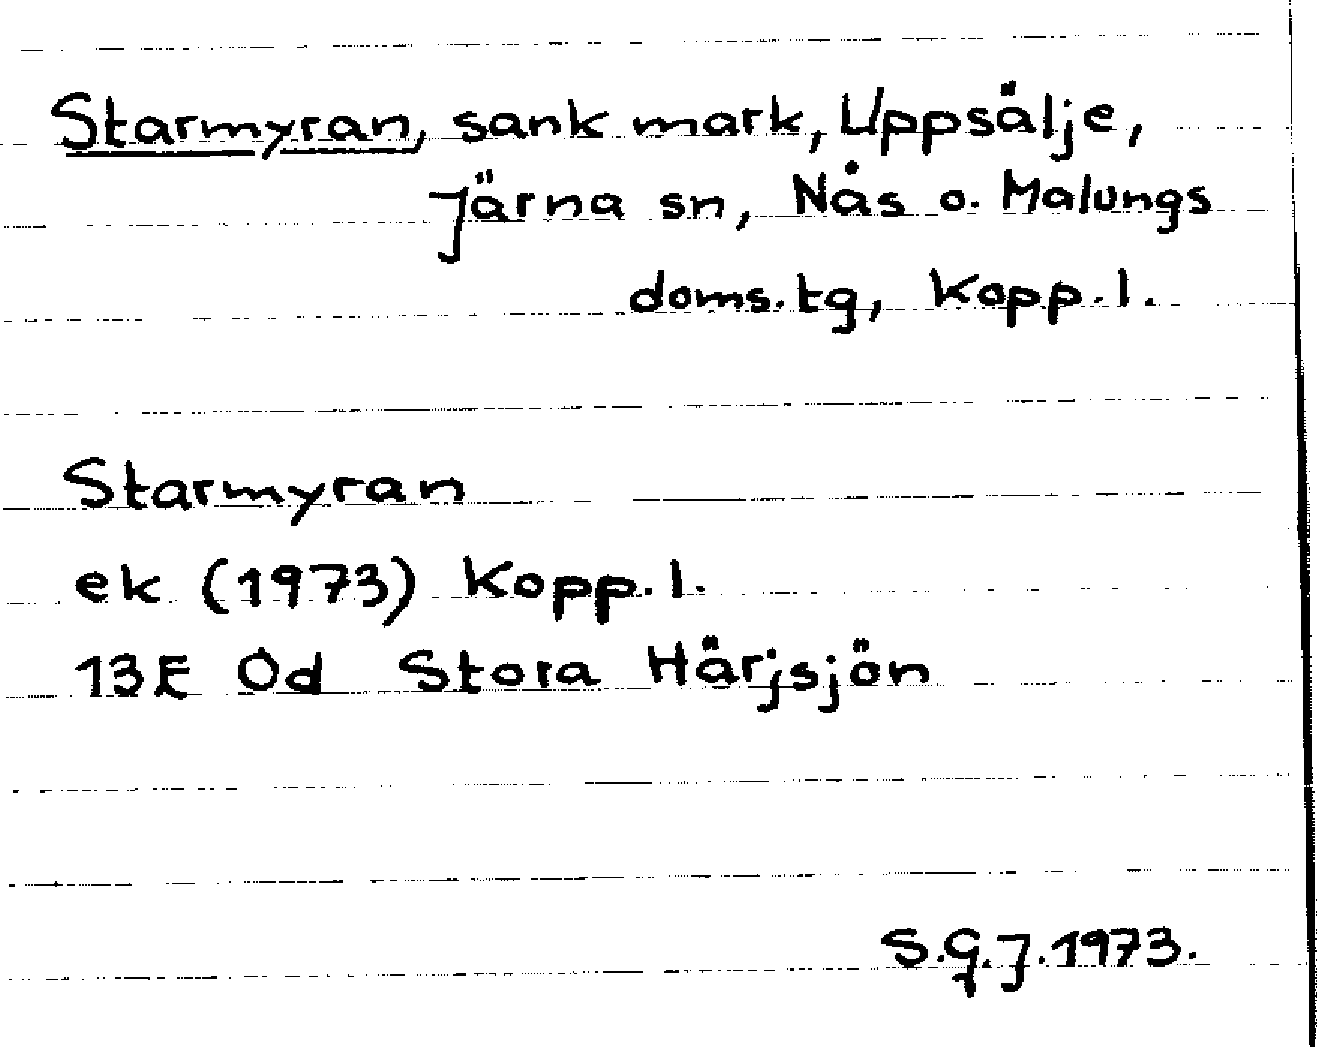 Starmyran, sank mark, Uppsälje,
Järna sn, Nås o. Malungs
doms.tg, Kopp.l.
Starmyran
ek (1973) Kopp.l.
13E 0d Stora Härjsjön
S.G.J.1973.